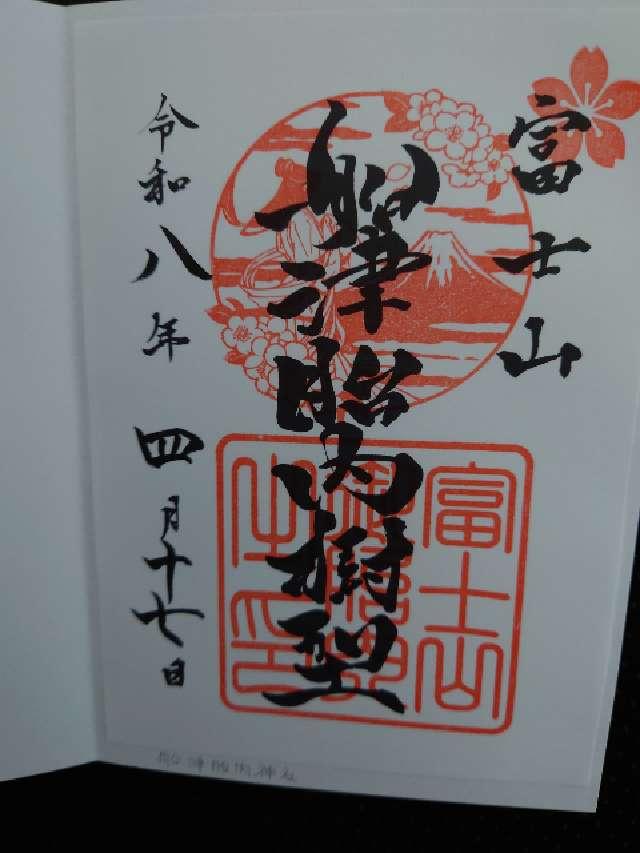 富士山
船津胎内樹型
令和八年四月十七日
富士山
之印
船津胎内神社